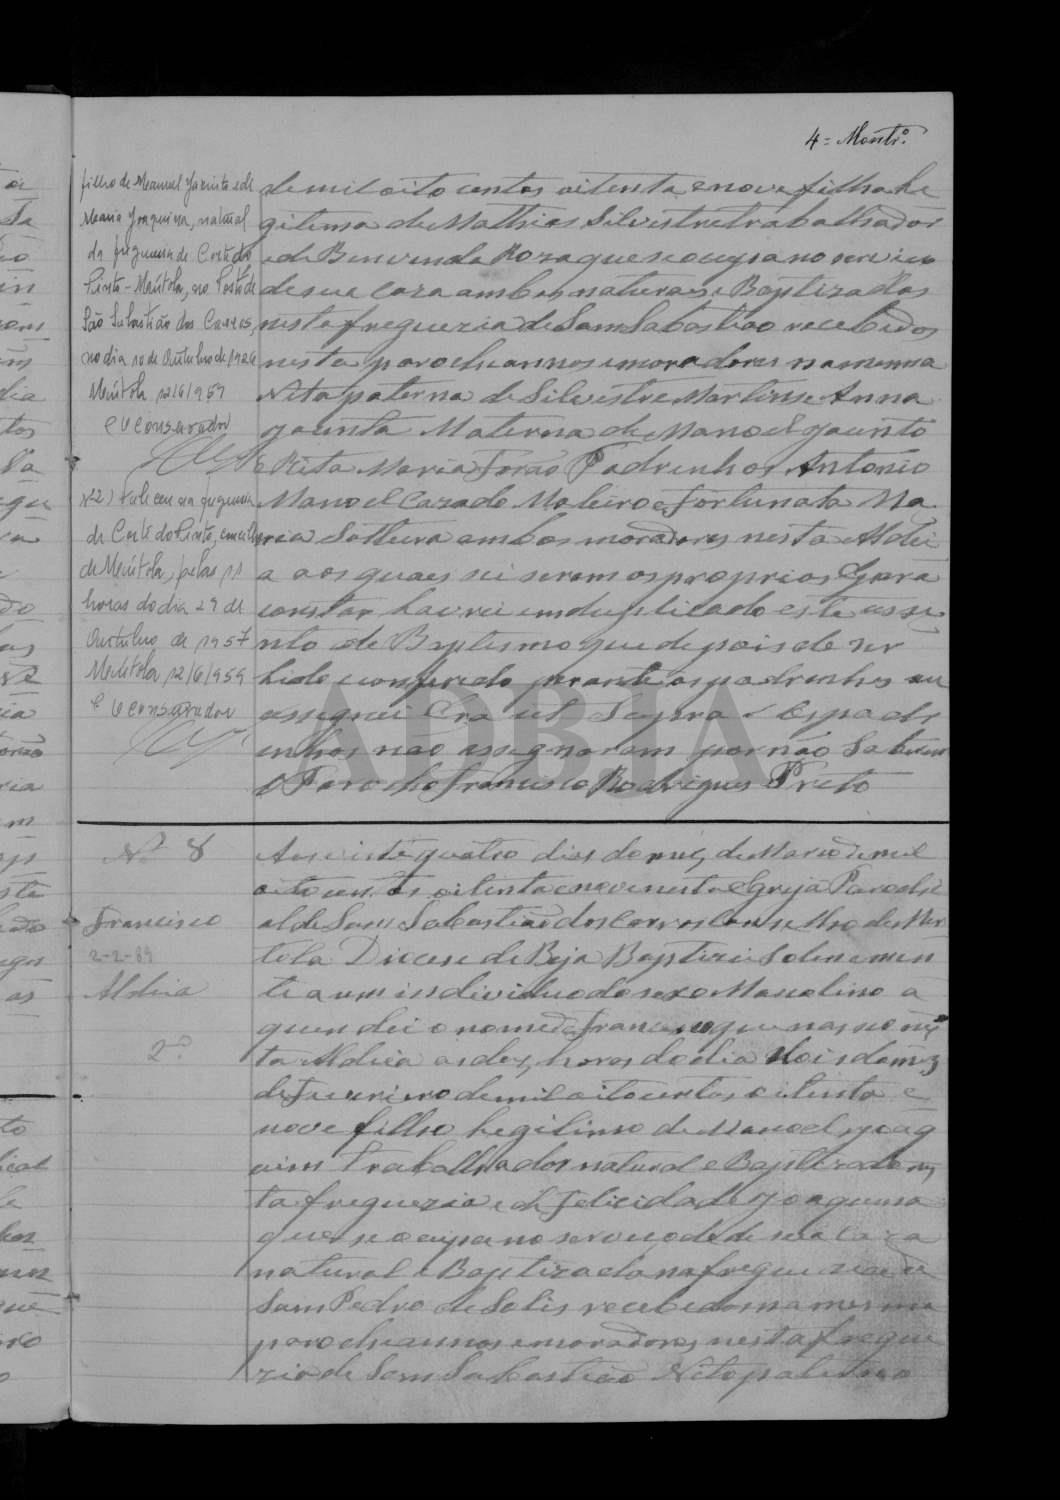 4 = Montrº.
filho de Manuel Jacinto e de
Maria Joaquina, natural
da freguesia de Corte do
Pinto - Mértola, no Posto de
São Sebastião dos Carros,
no dia 10 de Outubro de 1926
Mértola 12/6/959
O Conservador
Nº 2) Faleceu na freguesia
de Corte do Pinto, concelho
de Mértola, pelas 11
horas do dia 29 de
Outubro de 1957
Mértola 12/6/959
O Conservador
de mil oito centos oitenta e nove filha Le
gitima de Mathias Silvestre trabalhador
e de Benvenda Roza que se ocupa no servico
de sua caza ambos naturaes e Baptizados
nesta freguezia de Sam Sabastiao recebidos
nesta parochia nos e moradores na mesma
Nita paterna de Silvestre Martins e Anna
Jacinta Materna de Manoel Jacinto
e Rita Maria Forão Padrinhos Antonio
Manoel Cazado Moleiro e Fortunata Ma
ria Solteira ambos moradores nesta Aldei
a aos quaes sei serem os proprios E para
constar lavrei em duplicado este asse
nto de Baptismo que depois de ser
lido e conferido perante os padrinhos eu
assignei Era ut Supra Os padr
inhos nao assignaram por não saberem
O Parocho Francisco Rodrigues Preto
Nº 8
Francisco
2-2-89
Aldeia
2º
Aos vinte quatro dias do mez de Março de mil
oito centos oitenta e nove nesta Egreja Parochi
al de Sam Sabastião dos Carros Conselho de Mer
tola Diocese de Beja Baptizei Solenemen
te a um individuo do sexo Masculino a
quem dei o nome de Francisco que nasceo nes
ta Aldeia as dez horas do dia dois do mez
de Fevereiro de mil oitocentos oitenta e
nove filho Legitimo de Manoel Joaq
uim Trabalhador natural e Baptizado nes
ta freguezia e de Felicidade Joaquina
que se ocupa no serviço de de sua caza
natural e Baptizada na freguezia de
Sam Pedro de Solis recebidos na mesma
parochia nos e moradores nesta fregue
zia de Sam Sabastião Nito paterno
ADBJA